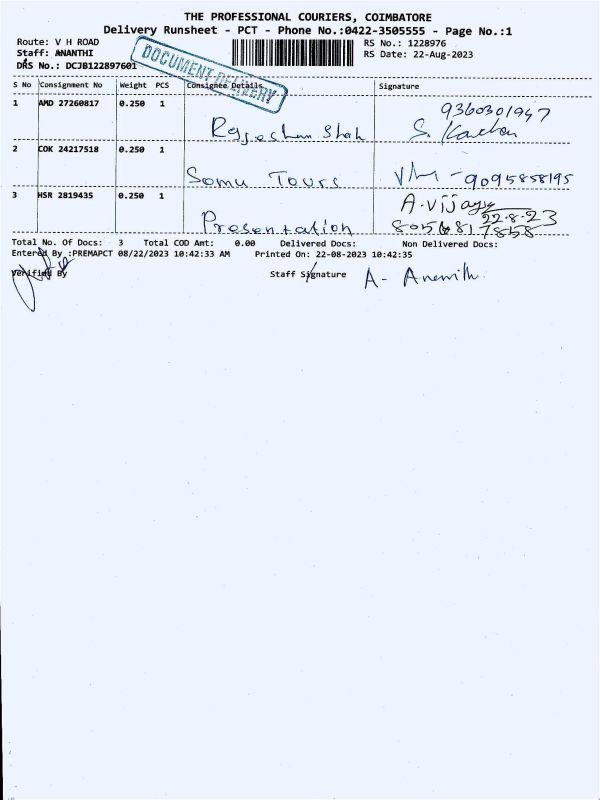 THE PROFESSIONAL COURIERS, COIMBATORE
Delivery Runsheet - PCT - Phone No.:0422-3505555 - Page No.:1
Route: V H ROAD
Staff: ANANTHI
DRS No.: DCJB122897601
DOCUMENT DELIVERY
RS No.: 1228976
RS Date: 22-Aug-2023
S No Consignment No Weight PCS Consignee Details Signature
1 AMD 27260817 0.250 1 9360301947
Shah S.
2 COK 24217518 0.250 1
Somu Tours - 9095858195
3 HSR 2819435 0.250 1 A. Vijaya
22-8-23
Presentation
Total No. Of Docs: 3 Total COD Amt: 0.00 Delivered Docs: Non Delivered Docs:
Entered By :PREMAPCT 08/22/2023 10:42:33 AM Printed On: 22-08-2023 10:42:35
Verified By Staff Signature A-